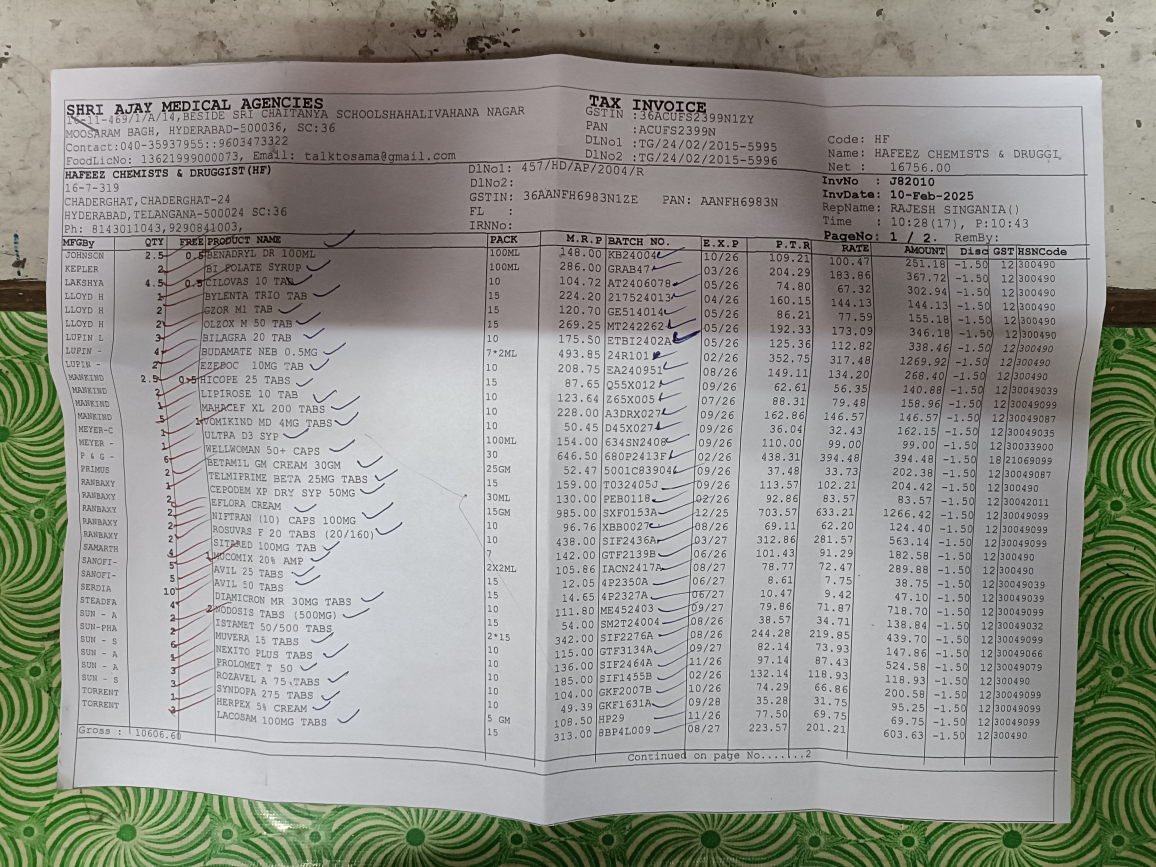 SHRI AJAY MEDICAL AGENCIES
16-11-469/1/A/14,BESIDE SRI CHAITANYA SCHOOLSHAHALIVAHANA NAGAR
MOOSARAM BAGH, HYDERABAD-500036, SC:36
Contact:040-35937955::9603473322
FoodLicNo: 13621999000073, Email: talktosama@gmail.com
TAX INVOICE
GSTIN :36ACUFS2399N1ZY
PAN :ACUFS2399N
DLNo1 :TG/24/02/2015-5995
DLNo2 :TG/24/02/2015-5996
Code: HF
Name: HAFEEZ CHEMISTS & DRUGGI
Net : 16756.00
HAFEEZ CHEMISTS & DRUGGIST(HF)
16-7-319
CHADERGHAT,CHADERGHAT-24
HYDERABAD,TELANGANA-500024 SC:36
Ph: 8143011043,9290841003,
DlNo1: 457/HD/AP/2004/R
DlNo2:
GSTIN: 36AANFH6983N1ZE PAN: AANFH6983N
FL :
IRNNo:
InvNo : J82010
InvDate: 10-Feb-2025
RepName: RAJESH SINGANIA()
Time : 10:28(17), P:10:43
PageNo: 1 / 2. RemBy:
MFGBy QTY FREE PRODUCT NAME PACK M.R.P BATCH NO. E.X.P P.T.R RATE AMOUNT Disc GST HSNCode
JOHNSON 2.5 0.5 BENADRYL DR 100ML 100ML 148.00 KB24004 10/26 109.21 100.47 251.18 -1.50 12 300490
KEPLER 2 BI FOLATE SYRUP 100ML 286.00 GRAB47 03/26 204.29 183.86 367.72 -1.50 12 300490
LAKSHYA 4.5 0.5 CILOVAS 10 TAB 10 104.72 AT2406078 05/26 74.80 67.32 302.94 -1.50 12 300490
LLOYD H 1 BYLENTA TRIO TAB 15 224.20 217524013 04/26 160.15 144.13 144.13 -1.50 12 300490
LLOYD H 2 GZOR M1 TAB 10 120.70 GE514014 05/26 86.21 77.59 155.18 -1.50 12 300490
LLOYD H 2 OLZOX M 50 TAB 15 269.25 MT242262 05/26 192.33 173.09 346.18 -1.50 12 300490
LUPIN L 3 BILAGRA 20 TAB 10 175.50 ETBI2402A 05/26 125.36 112.82 338.46 -1.50 12 300490
LUPIN - 4 BUDAMATE NEB 0.5MG 7*2ML 493.85 24R101 02/26 352.75 317.48 1269.92 -1.50 12 300490
LUPIN - 2 EZEPOC 10MG TAB 10 208.75 EA240951 08/26 149.11 134.20 268.40 -1.50 12 300490
MANKIND 2.5 0.5 HICOPE 25 TABS 15 87.65 Q55X012 09/26 62.61 56.35 140.88 -1.50 12 30049039
MANKIND 2 LIPIROSE 10 TAB 10 123.64 Z65X005 07/26 88.31 79.48 158.96 -1.50 12 30049099
MANKIND 1 MAHACEF XL 200 TABS 10 228.00 A3DRX027 09/26 162.86 146.57 146.57 -1.50 12 30049087
MANKIND 5 1 VOMIKIND MD 4MG TABS 10 50.45 D45X027 09/26 36.04 32.43 162.15 -1.50 12 30049035
MEYER-C 1 ULTRA D3 SYP 100ML 154.00 634SN2408 09/26 110.00 99.00 99.00 -1.50 12 30033900
MEYER - 1 WELLWOMAN 50+ CAPS 30 646.50 680P2413F 02/26 438.31 394.48 394.48 -1.50 18 21069099
P & G - 6 BETAMIL GM CREAM 30GM 25GM 52.47 5001C83904 09/26 37.48 33.73 202.38 -1.50 12 30049099
PRIMUS 2 TELMIPRIME BETA 25MG TABS 15 159.00 T032405J 09/26 113.57 102.21 204.42 -1.50 12 300490
RANBAXY 1 CEPODEM XP DRY SYP 50MG 30ML 130.00 PEB0118 02/26 92.86 83.57 83.57 -1.50 12 30042011
RANBAXY 2 EFLORA CREAM 15GM 985.00 SXF0153A 12/25 703.57 633.21 1266.42 -1.50 12 30049099
RANBAXY 2 NIFTRAN (10) CAPS 100MG 10 96.76 XBB0027 08/26 69.11 62.20 124.40 -1.50 12 30049099
RANBAXY 2 ROSUVAS F 20 TABS (20/160) 10 438.00 SIF2436A 03/27 312.86 281.57 563.14 -1.50 12 30049099
RANBAXY 2 SITARED 100MG TAB 7 142.00 GTF2139B 06/26 101.43 91.29 182.58 -1.50 12 300490
SAMARTH 4 1 MUCOMIX 20% AMP 2X2ML 105.86 IACN2417A 08/27 78.77 72.47 289.88 -1.50 12 300490
SANOFI- 5 AVIL 25 TABS 15 12.05 4P2350A 06/27 8.61 7.75 38.75 -1.50 12 30049039
SANOFI- 5 AVIL 50 TABS 15 14.65 4P2327A 06/27 10.47 9.42 47.10 -1.50 12 30049039
SERDIA 10 DIAMICRON MR 30MG TABS 10 111.80 ME452403 09/27 79.86 71.87 718.70 -1.50 12 300490
STEADFA 4 2 NODOSIS TABS (500MG) 10 54.00 SM2T24004 08/26 38.57 34.71 138.84 -1.50 12 30049032
SUN - A 2 ISTAMET 50/500 TABS 2*15 342.00 SIF2276A 08/26 244.28 219.85 439.70 -1.50 12 30049099
SUN-PHA 2 MUVERA 15 TABS 10 115.00 GTF3134A 09/27 82.14 73.93 147.86 -1.50 12 30049066
SUN - S 6 NEXITO PLUS TABS 10 136.00 SIF2464A 11/26 97.14 87.43 524.58 -1.50 12 30049079
SUN - A 1 PROLOMET T 50 10 185.00 SIF1455B 02/26 132.14 118.93 118.93 -1.50 12 300490
SUN - A 3 ROZAVEL A 75 TABS 10 104.00 GKF2007B 10/26 74.29 66.86 200.58 -1.50 12 30049099
SUN - S 3 SYNDOPA 275 TABS 10 49.39 GKF1631A 09/28 35.28 31.75 95.25 -1.50 12 30049099
TORRENT 1 HERPEX 5% CREAM 5 GM 108.50 HP29 11/26 77.50 69.75 69.75 -1.50 12 30049099
TORRENT 3 LACOSAM 100MG TABS 15 313.00 8BP4L009 08/27 223.57 201.21 603.63 -1.50 12 300490
Gross : 10606.60
Continued on page No......2